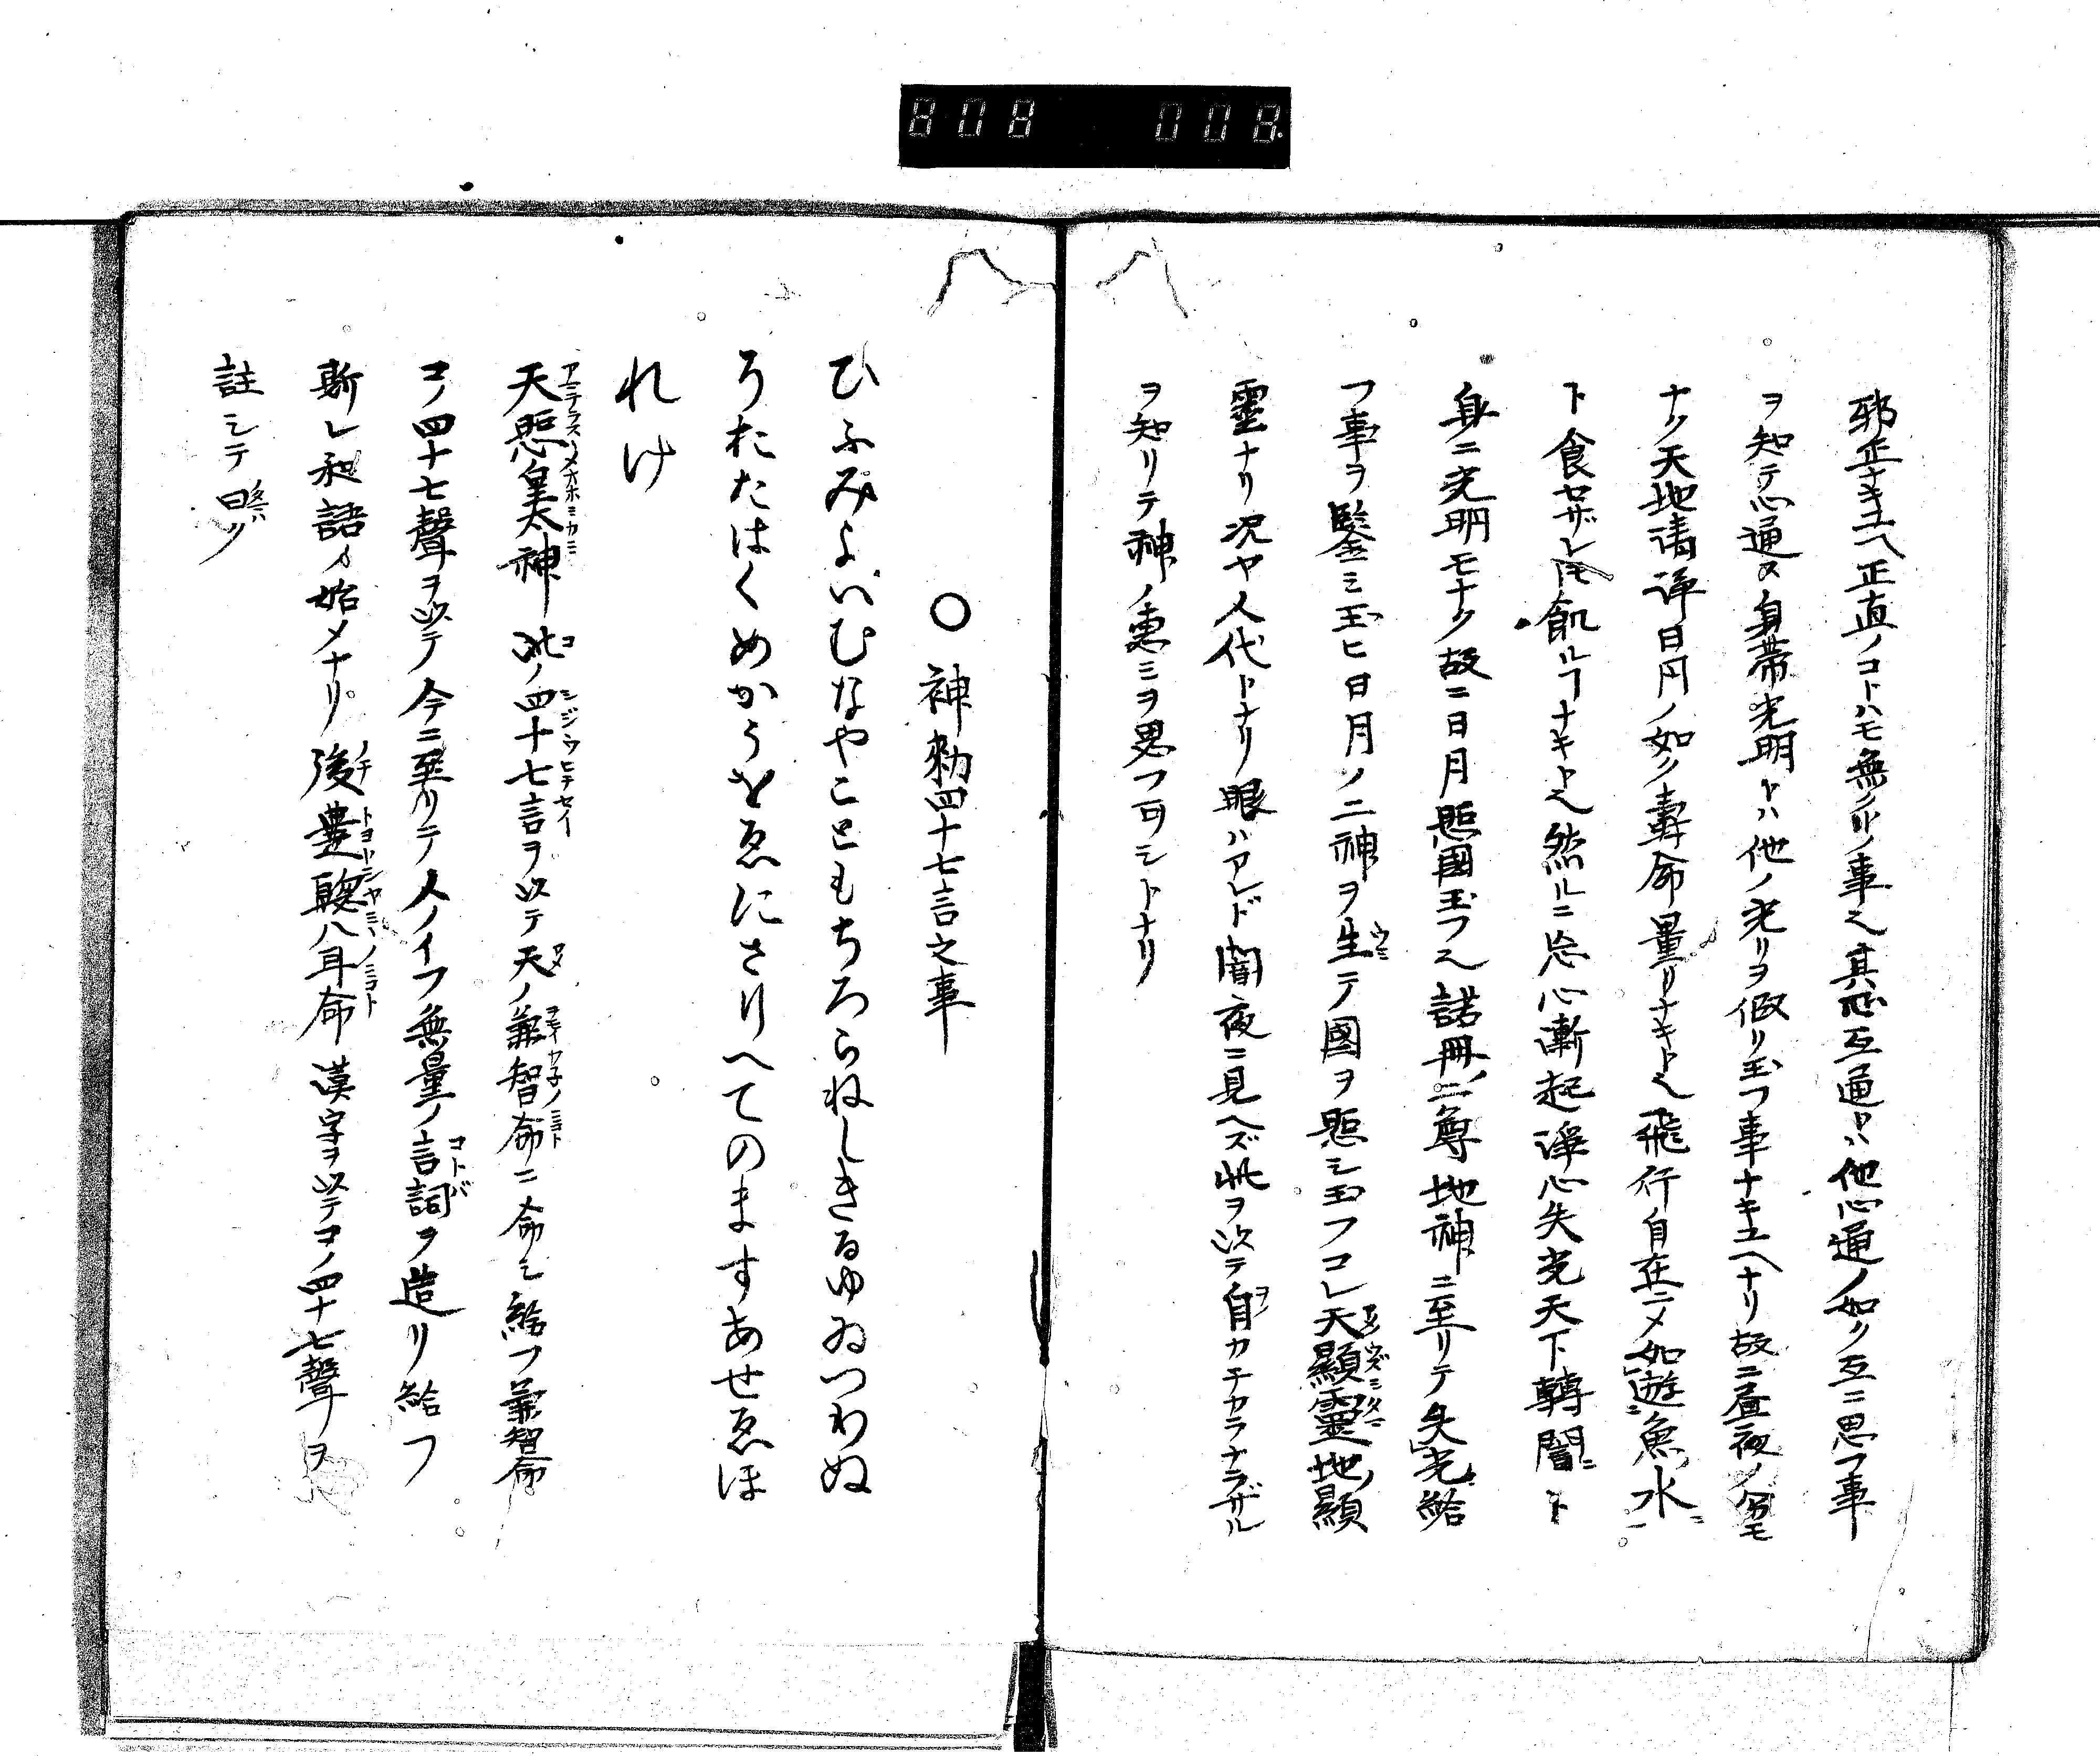 808 008
邪正ナキユヘ正直ノコトハモ無ノ事也其心互通トハ他心通ノ如ク互ニ思フ事
ヲ知テ心通ス身帯光明トハ他ノ光リヲ假リ玉フ事ナキユヘナリ故ニ昼夜ノ分モ
ナク天地清浄日円ノ如ク寿命量リナキト也飛行自在ニメ如遊魚水
ト食セザレ𪜈飢ルヿナキト也然ルニ忩心漸起浄心失光天下轉闇ト
身ニ光明モナク故ニ日月照國玉フ也諾冊二尊地神ニ至リテ失光給
フ事ヲ鑒ミ玉ヒ日月ノ二神ヲ生テ國ヲ照シ玉フコレ天顯靈地顯
靈ナリ况ヤ人代トナリ眼ハアレド闇夜ニ見ヘズ此ヲ以テ自カチカラナラザル
ヲ知リテ神ノ恵ミヲ思フ可シトナリ
〇神勅四十七言之事
ひふみよいむなやこともちろらねしきるゆゐつわぬ
そをたはくめかうおゑにさりへてのますあせえほ
れけ
天照皇太神此ノ四十七言ヲ以テ天ノ兼智命ニ命シ給フ兼智命
コノ四十七聲ヲ以テ今ニ至リテ人ノイフ無量ノ言詞ヲ造リ給フ
斯レ和語ノ始メナリ後豊聡八耳命漢字ヲ以テコノ四十七聲ヲ
註シテ畧ハツ